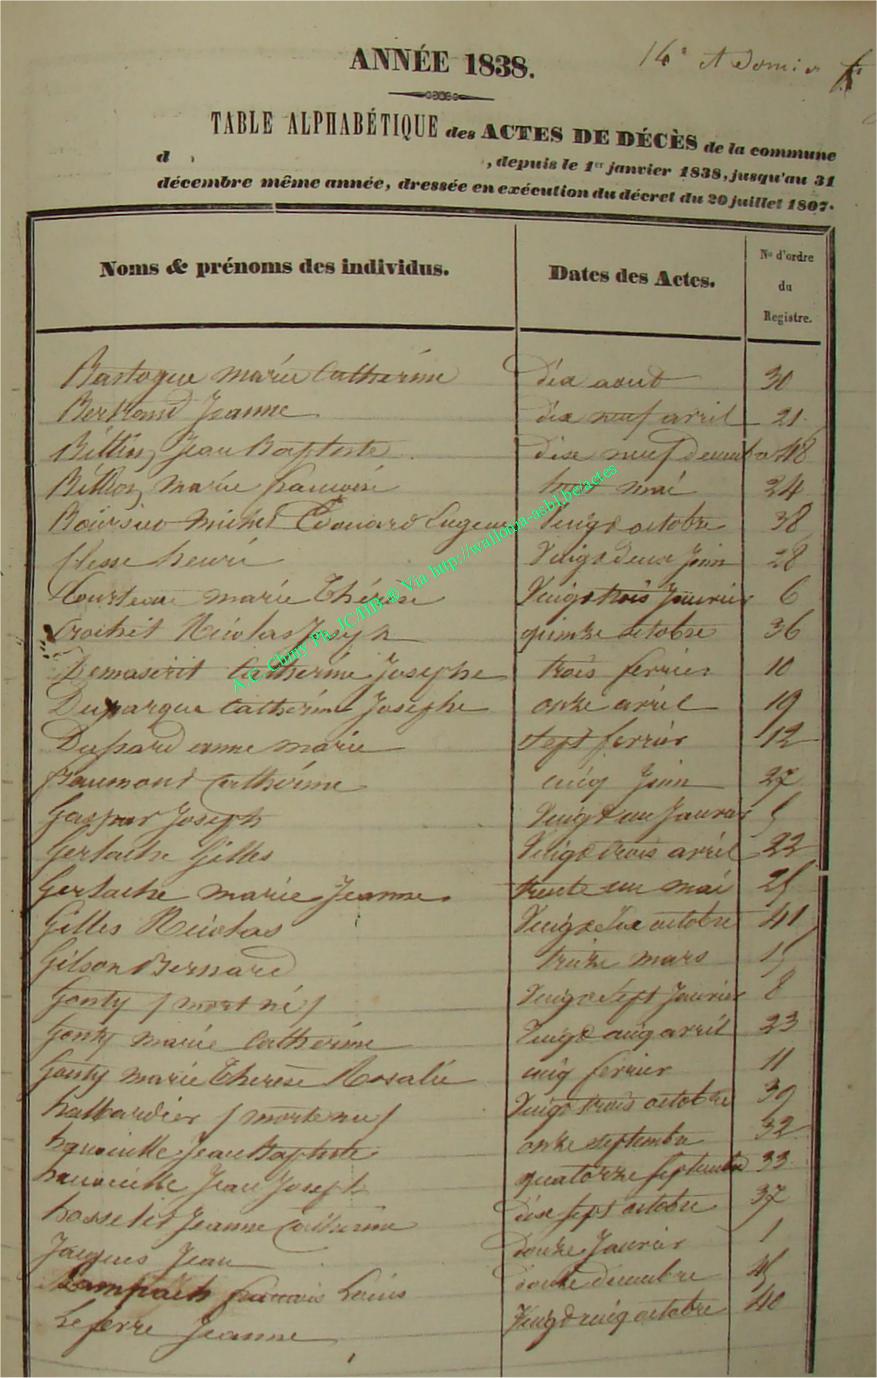 ANNÉE 1838.
14e et Dernier
TABLE ALPHABÉTIQUE des ACTES DE DÉCÈS de la commune
d , depuis le 1er janvier 1838, jusqu'au 31
décembre même année, dressée en exécution du décret du 20 juillet 1807.
Noms & prénoms des individus. Dates des Actes. No d'ordre du Registre.
Bastogne marie Catherine dix aout 30
Bertrand Jeanne dix neuf avril 21
Jean Baptiste dixe neuf decembre 48
marie francoise mai 24
michel Edouard Eugene Vingt octobre 38
henri Vingt deux Juin 28
marie Thérèse Vingt trois Janvier 6
Crochet Nicolas Joseph quinze octobre 36
Catherine Josephe trois fevrier 10
Duparque Catherine Josephe onze avril 19
Dupard anne marie sept fevrier 12
Catherine cinq Juin 27
Gaspar Joseph Vingt un Janvier 5
Gerlache Gilles Vingt trois avril 22
Gerlache marie Jeanne trente un mai 25
Gilles Nicolas octobre 41
Gilson Bernard treize mars 15
Gonty (mort né) Vingt Sept Janvier 8
Gonty marie Catherine Vingt cinq avril 23
Gonty marie Therèse Rosalie cinq fevrier 11
halbardier (mort né) Vingt trois octobre 39
Jean Baptiste onze septembre 32
Jean Joseph quatorze Septembre 33
hosselet Jeanne Catherine dixe sept octobre 37
Jacques Jean douze Janvier 1
Lampach francois Louis douze decembre 45
Lefevre Jeanne Vingt cinq octobre 40
A.C. Chiny Ph. JC/HB © Via http://wallonia-asbl.be/actes